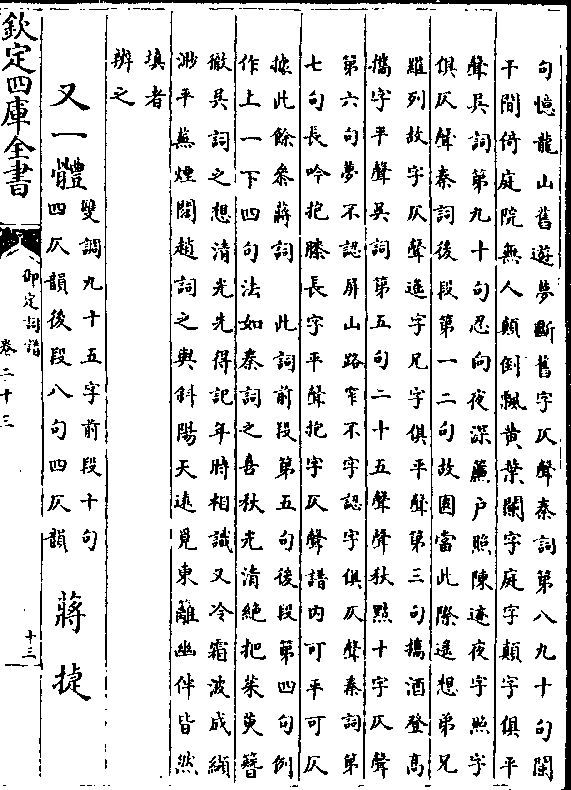 句憶龍山舊遊夢斷舊字仄聲秦詞第八九十句闌
干閒倚庭院無人顛倒飄黃葉闌字庭字顛字俱平
聲吳詞第九十句忍向夜深簾户照陳迹夜字照字
俱仄聲秦詞後段第一二句故園當此際遥想弟兄
羅列故字仄聲遥字兄字俱平聲第三句攜酒登高
攜字平聲吳詞第五句二十五聲聲秋點十字仄聲
第六句夢不認屏山路窄不字認字俱仄聲秦詞第
七句長吟抱膝長字平聲抱字仄聲譜内可平可仄
據此餘參蔣詞　此詞前段第五句後段第四句例
作上一下四句法如秦詞之喜秋光清絕把茱萸簪
徹吳詞之想清光先得記年時相識又冷霜波成纈
渺平蕪煙闊趙詞之與斜陽天遠覓東籬幽伴皆然
填者
辨之
又一體
雙調九十五字前段十句
四仄韻後段八句四仄韻
蔣捷
欽定四庫全書
御定詞譜
卷二十三
十三